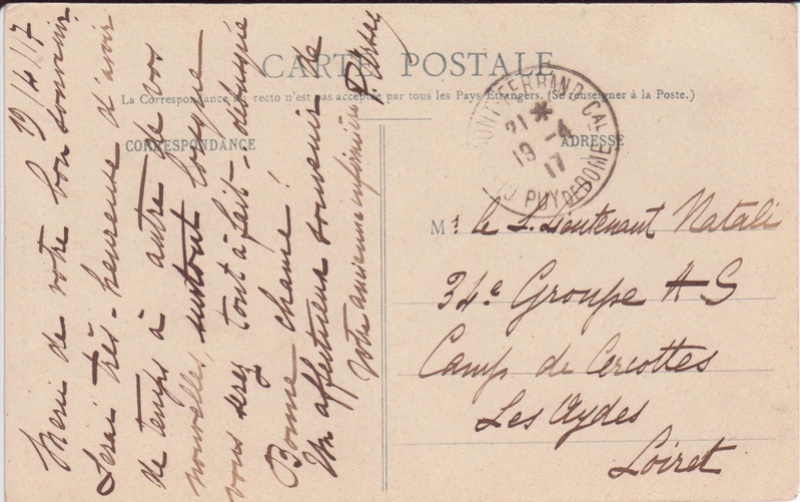 CARTE POSTALE
La Correspondance au recto n'est pas acceptée par tous les Pays Etrangers. (Se renseigner à la Poste.)
CORRESPONDANCE
ADRESSE
19/4/17
Merci de votre bon souvenir.
Serai très-heureuse d'avoir
de temps à autre de vos
nouvelles, surtout lorsque
vous serez tout à fait-débrouillé
Bonne chance!
Un affectueux souvenir de
Votre ancienne infirmière
CLERMONT-FERRAND CAL
21 * 
19 -4
17
PUY DE DOME
M r le S. Lieutenant Natali
34e Groupe A S
Camp de Cercottes
Les Aydes
Loiret